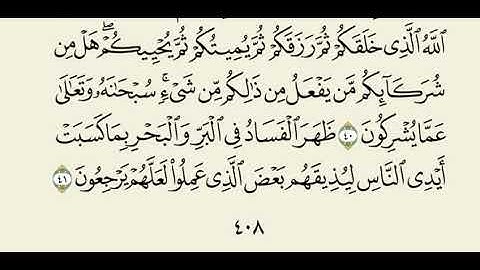 ٱللَّهُ ٱلَّذِى خَلَقَكُمْ ثُمَّ رَزَقَكُمْ ثُمَّ يُمِيتُكُمْ ثُمَّ يُحْيِيكُمْ ۖ هَلْ مِن
شُرَكَآئِكُم مَّن يَفْعَلُ مِن ذَٰلِكُم مِّن شَىْءٍ ۚ سُبْحَـٰنَهُۥ وَتَعَـٰلَىٰ
عَمَّا يُشْرِكُونَ ٤٠ ظَهَرَ ٱلْفَسَادُ فِى ٱلْبَرِّ وَٱلْبَحْرِ بِمَا كَسَبَتْ
أَيْدِى ٱلنَّاسِ لِيُذِيقَهُم بَعْضَ ٱلَّذِى عَمِلُوا۟ لَعَلَّهُمْ يَرْجِعُونَ ٤١
٤٠٨